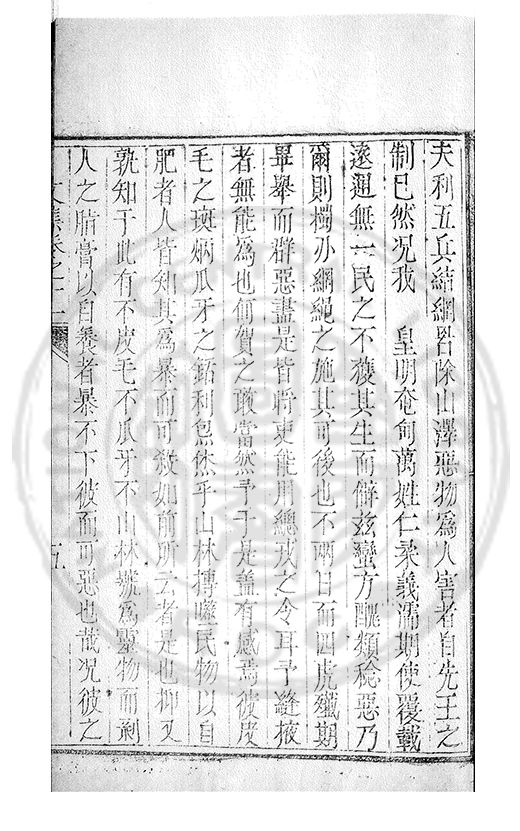 夫利五兵結網罟除山澤惡物爲人害者自先王之
制已然况我　皇明奄甸萬姓仁柔義濡期使覆載
遠邇無一民之不獲其生而僻兹蠻方醜類稔惡乃
爾則擭刅綱繩之施其可後也不兩日而四虎殲期
畢舉而群惡盡是皆將吏能用總戎之令耳予縫掖
者無能爲也何賀之敢當然予于是盖有感焉彼皮
毛之斑炳瓜牙之銛利炰烋乎山林搏噬民物以自
肥者人皆知其爲暴而可殺如前所云者是也抑又
孰知于此有不皮毛不瓜牙不山林號爲靈物而剥
人之脂膏以自養者暴不下彼而可惡也哉况彼之
文集卷之十一
五